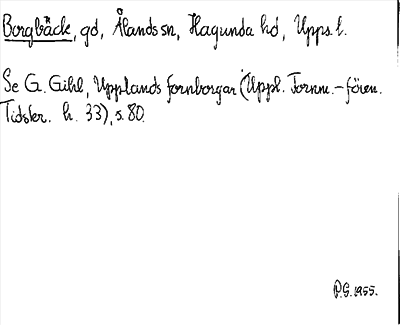 Borgbäck, gd, Ålands sn, Hagunda hd, Upps. l.
Se G. Gihl, Upplands fornborgar (Uppl. Fornm.-fören.
Tidskr. h. 33), s. 80.
P.G. 1955.